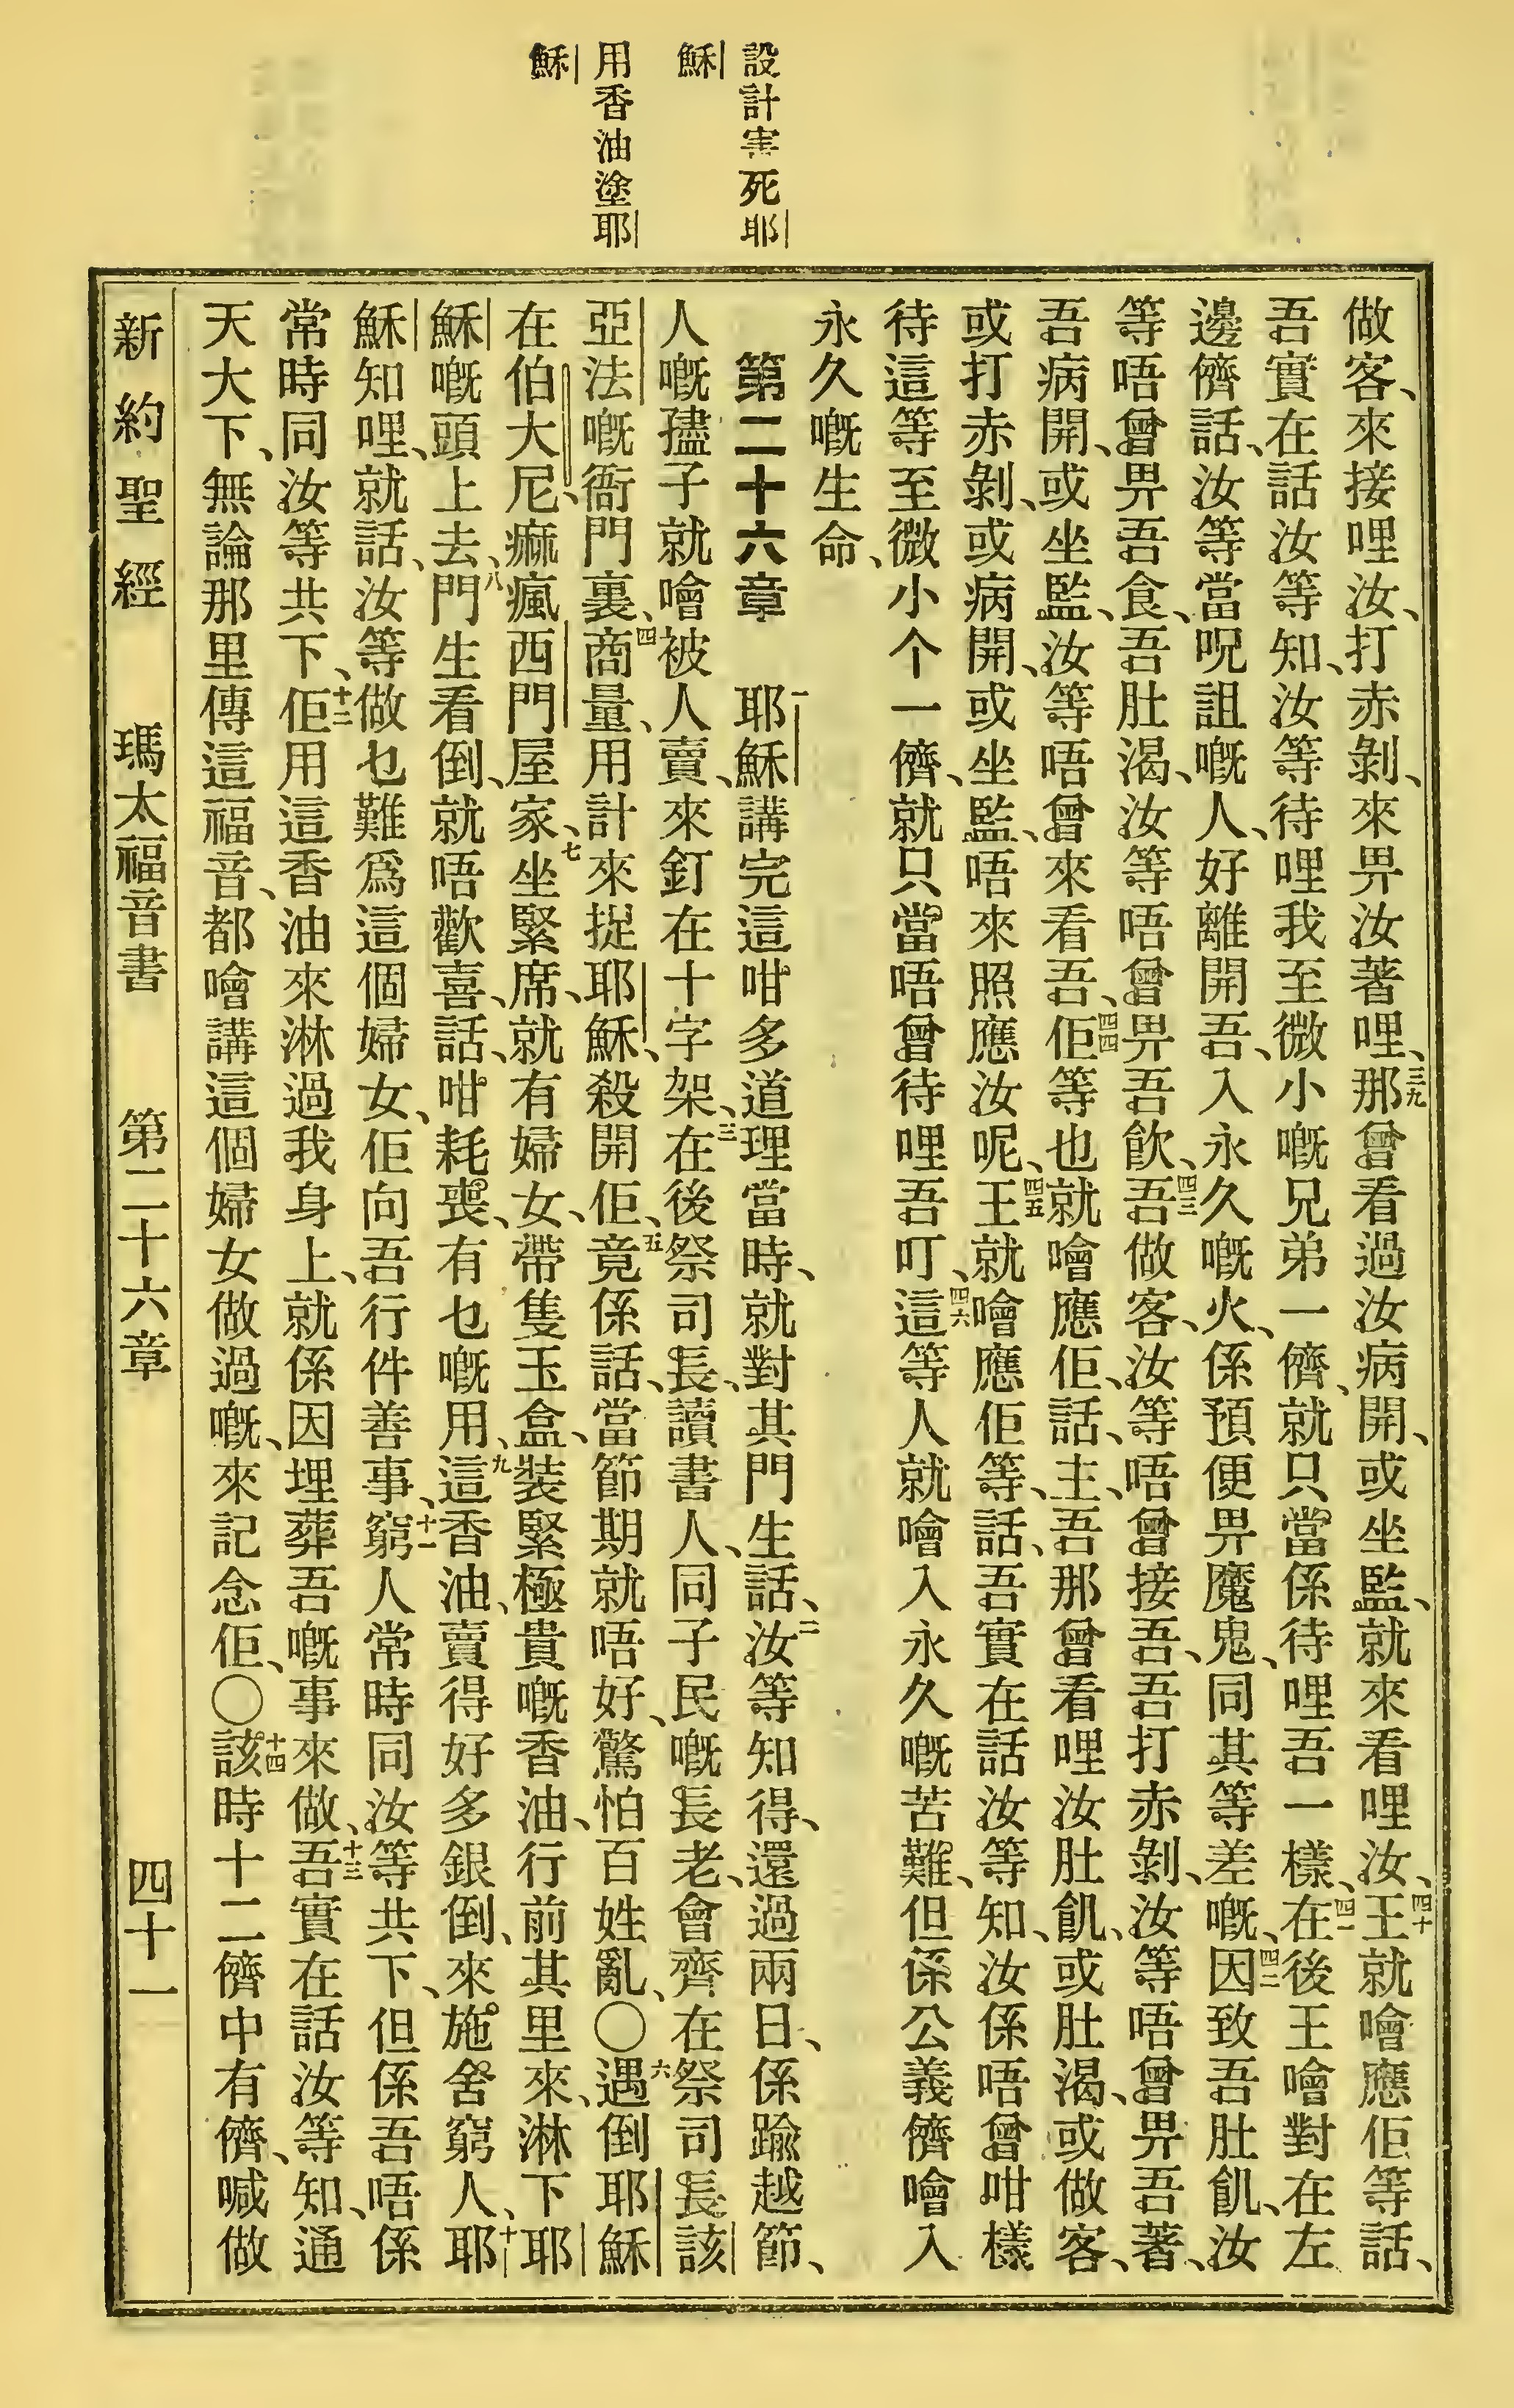 設計害死耶
穌
用香油塗耶
穌
做客、來接哩汝、打赤剝、來畀汝著哩、三九那曾看過汝病開、或坐監、就來看哩汝、四十王就噲應佢等話、
吾實在話汝等知、汝等待哩我至微小嘅兄弟一儕、就只當係待哩吾一樣、四一在後王噲對在左
邊儕話、汝等當呪詛嘅人、好離開吾、入永久嘅火、係預便畀魔鬼、同其等差嘅、四二因致吾肚飢、汝
等唔曾畀吾食、吾肚渴、汝等唔曾畀吾飮、四三吾做客、汝等唔曾接吾、吾打赤剝、汝等唔曾畀吾著、
吾病開、或坐監、汝等唔曾來看吾、四四佢等也就噲應佢、話、主、吾那曾看哩汝肚飢、或肚渴、或做客、
或打赤剝、或病開、或坐監、唔來照應汝呢、四五王就噲應佢等、話、吾實在話汝等知、汝係唔曾咁樣
待這等至微小个一儕、就只當唔曾待哩吾叮、四六這等人就噲入永久嘅苦難、但係公義儕噲入
永久嘅生命、
第二十六章 一耶穌講完這咁多道理當時、就對其門生話、二汝等知得、還過兩日、係踰越節、
人嘅孻子就噲被人賣、來釘在十字架、三在後祭司長、讀書人、同子民嘅長老、會齊在祭司長該
亞法嘅衙門裏、四商量、用計來捉耶穌、殺開佢、五竟係話、當節期就唔好、驚怕百姓亂、〇六遇倒耶穌
在伯大尼、痲瘋西門屋家、七坐緊席、就有婦女、帶隻玉盒、裝緊極貴嘅香油、行前其里來、淋下耶
穌嘅頭上去、八門生看倒、就唔歡喜、話、咁耗喪、有乜嘅用、九這香油、賣得好多銀倒、來施舍窮人、十耶
穌知哩、就話、汝等做乜難爲這個婦女、佢向吾行件善事、十一窮人常時同汝等共下、但係吾唔係
常時同汝等共下、十二佢用這香油來淋過我身上、就係因埋葬吾嘅事來做、十三吾實在話汝等知、通
天大下、無論那里傳這福音、都噲講這個婦女做過嘅、來記念佢、〇十四該時十二儕中有儕、喊做
新約聖經 瑪太福音書 第二十六章 四十一